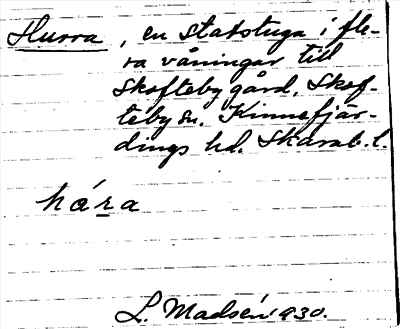 Hurra, en statstuga i fle-
ra våningar till
Skofteby gård, Skof-
teby sn. Kinnefjär-
dings hd. Skarab. l.
hára
L. Madsén 1930.